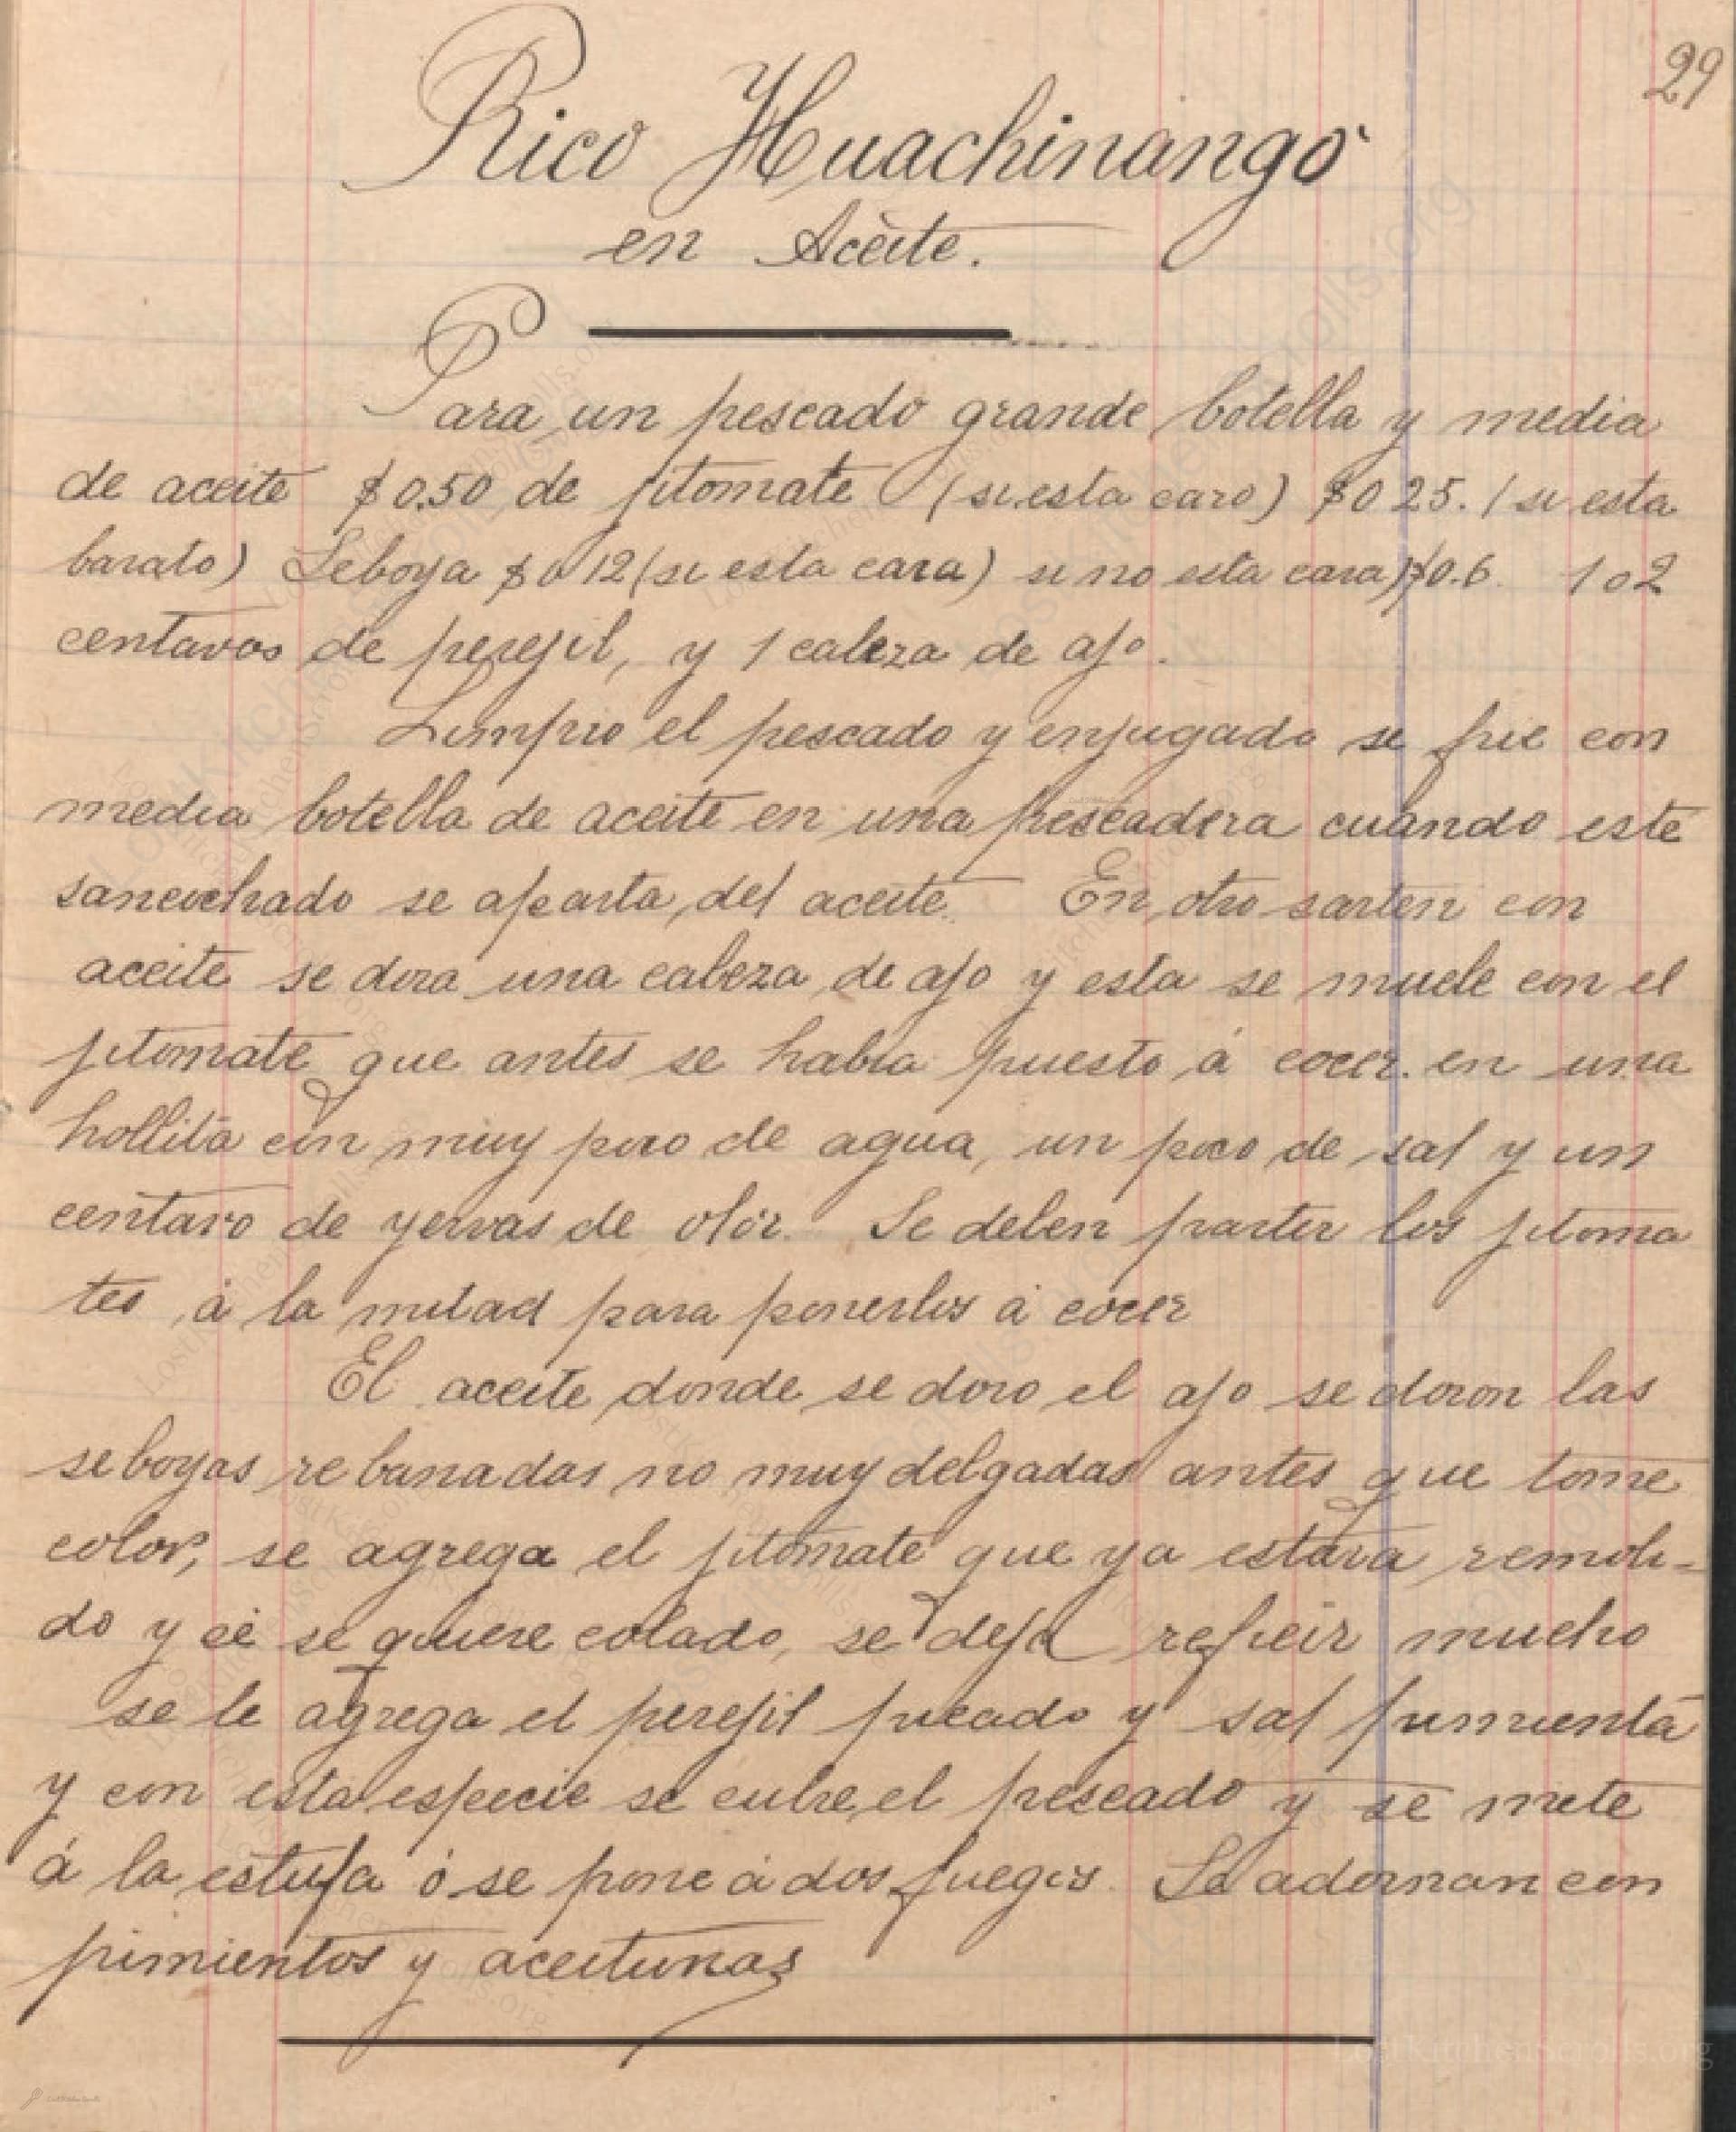 29
Rico Huachinango
en Aceite.
Para un pescado grande botella y media
de aceite $0.50 de jitomate (si esta caro) $0 25. (si esta
barato) Seboya $0 12 (si esta cara) si no esta cara) $0.6. 1 o 2
centavos de perejil, y 1 cabeza de ajo.
Limpio el pescado y enjugado se frie con
media botella de aceite en una pescadera cuando este
sancochado se aparta del aceite. En otro sarten con
aceite se dora una cabeza de ajo y esta se muele con el
jitomate que antes se habia puesto á cocer en una
hollita con muy poco de agua, un poco de sal y un
centavo de yervas de olor. Se deben partir los jitoma
tes á la mitad para ponerlos á cocer
El aceite donde se doro el ajo se doron las
seboyas rebanadas no muy delgadas antes que tome
color, se agrega el jitomate que ya estara remoli-
do y si se quiere colado, se deja refreir mucho
se le agrega el perejil picado y sal pimienta
y con esta especie se cubre el pescado y se mete
á la estufa ó se pone á dos fuegos. Se adornan con
pimientos y aceitunas
LostKitchenScrolls.org